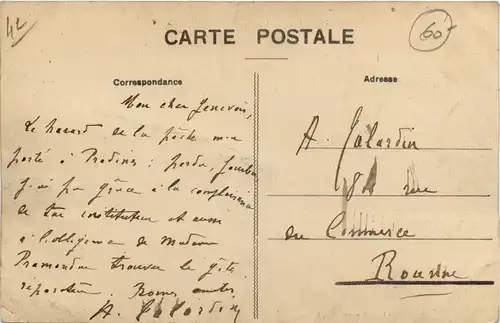 42
60f
CARTE POSTALE
Correspondance
Adresse
Mon cher Genevois,
Le hasard de la pêche m'a
porté à Pradines ; perdu,
j'ai pu grâce à la complaisance
de ton instituteur et aussi
à l'obligeance de Madame
trouver le gîte
réparateur. Bonne
A. Jalardin
A. Jalardin
rue
du Commerce
Roanne